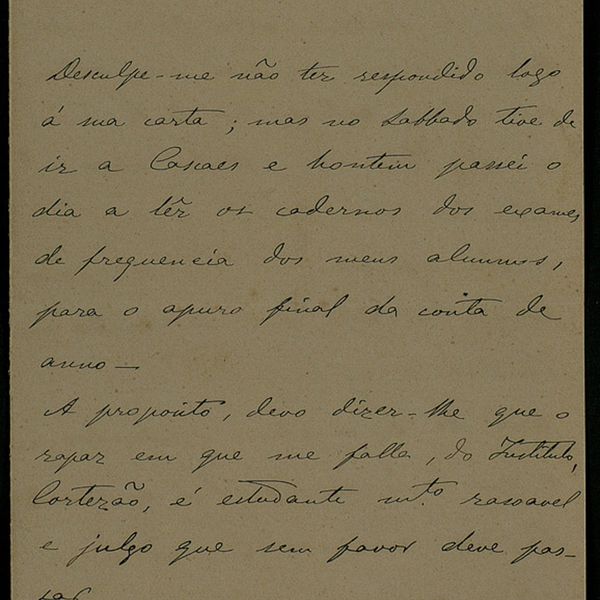 Desculpe-me não ter respondido logo
á sua carta; mas no sabbado tive de
ir a Cascaes e hontem passei o
dia a lêr os cadernos dos exames
de frequencia dos meus alumnos,
para o apuro final da conta de
anno —
A proposito, devo dizer-lhe que o
rapaz em que me falla, do Instituto,
Cortezão, é estudante mto. rasoavel
e julgo que sem favor deve pas-
sar